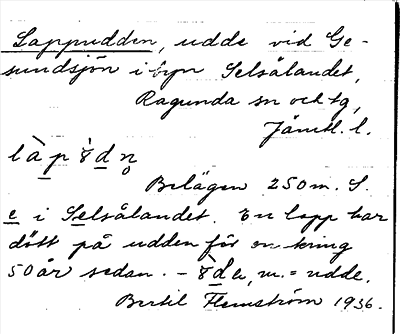 Lappudden, udde vid Ge-
sundsjön i byn Selsålandet,
Ragunda sn och tg,
Jämtl. l.
làp ʹ8dn̥
Belägen 250 m. S.
e i Selsålandet. En lapp har
dött på udden för en kring
50 år sedan. – 8de, m. = udde.
Bertil Flemström 1936.